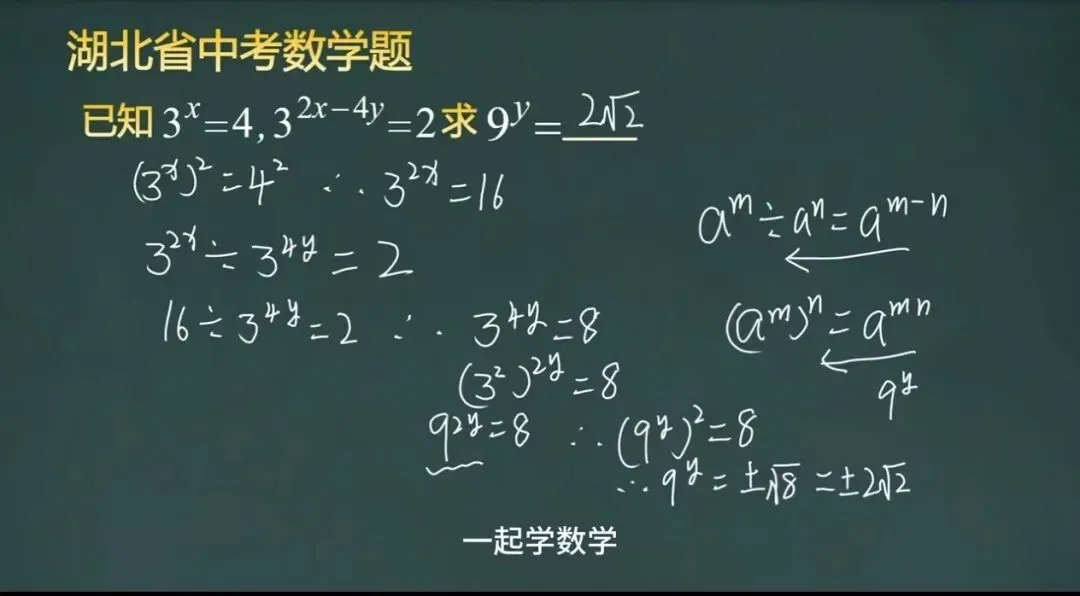 湖北省中考数学题
已知 3^x=4,3^{2x-4y}=2求 9^y=2√2
(3^x)^2=4^2 ∴ 3^{2x}=16
3^{2x}÷3^{4y}=2
16÷3^{4y}=2 ∴ 3^{4y}=8
(3^2)^{2y}=8
9^{2y}=8 ∴(9^y)^2=8
∴9^y=±√8=±2√2
a^m÷a^n=a^{m-n}
(a^m)^n=a^{mn}
9^y
一起学数学